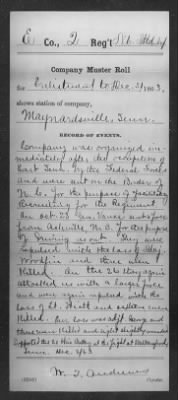 E Co., 2 Reg't N.C. Mtd Inf
Company Muster Roll
for Enrollment to Dec. 31, 1863,
shows station of company,
Maynardsville, Tenn.
RECORD OF EVENTS.
Company was organized im-
mediately after the occupation of
East Tenn. by the Federal forces
and were sent on the Border of
N.C. for the purpose of
Recruiting for the Regiment
On Oct. 23 Gen. Vance
from Asheville, N.C. for the purpose
of driving us out. They were
repulsed with the loss of Maj.
Woodfin and three men
killed. On the 26 they again
attacked us with a larger force
and were again repulsed with the
loss of Lt. Hyatt and
killed. Our loss was
three men killed and eight slightly wounded
Supported the at the fight at
Tenn. Dec. 2/63
W. T. Andrews
Copyist.